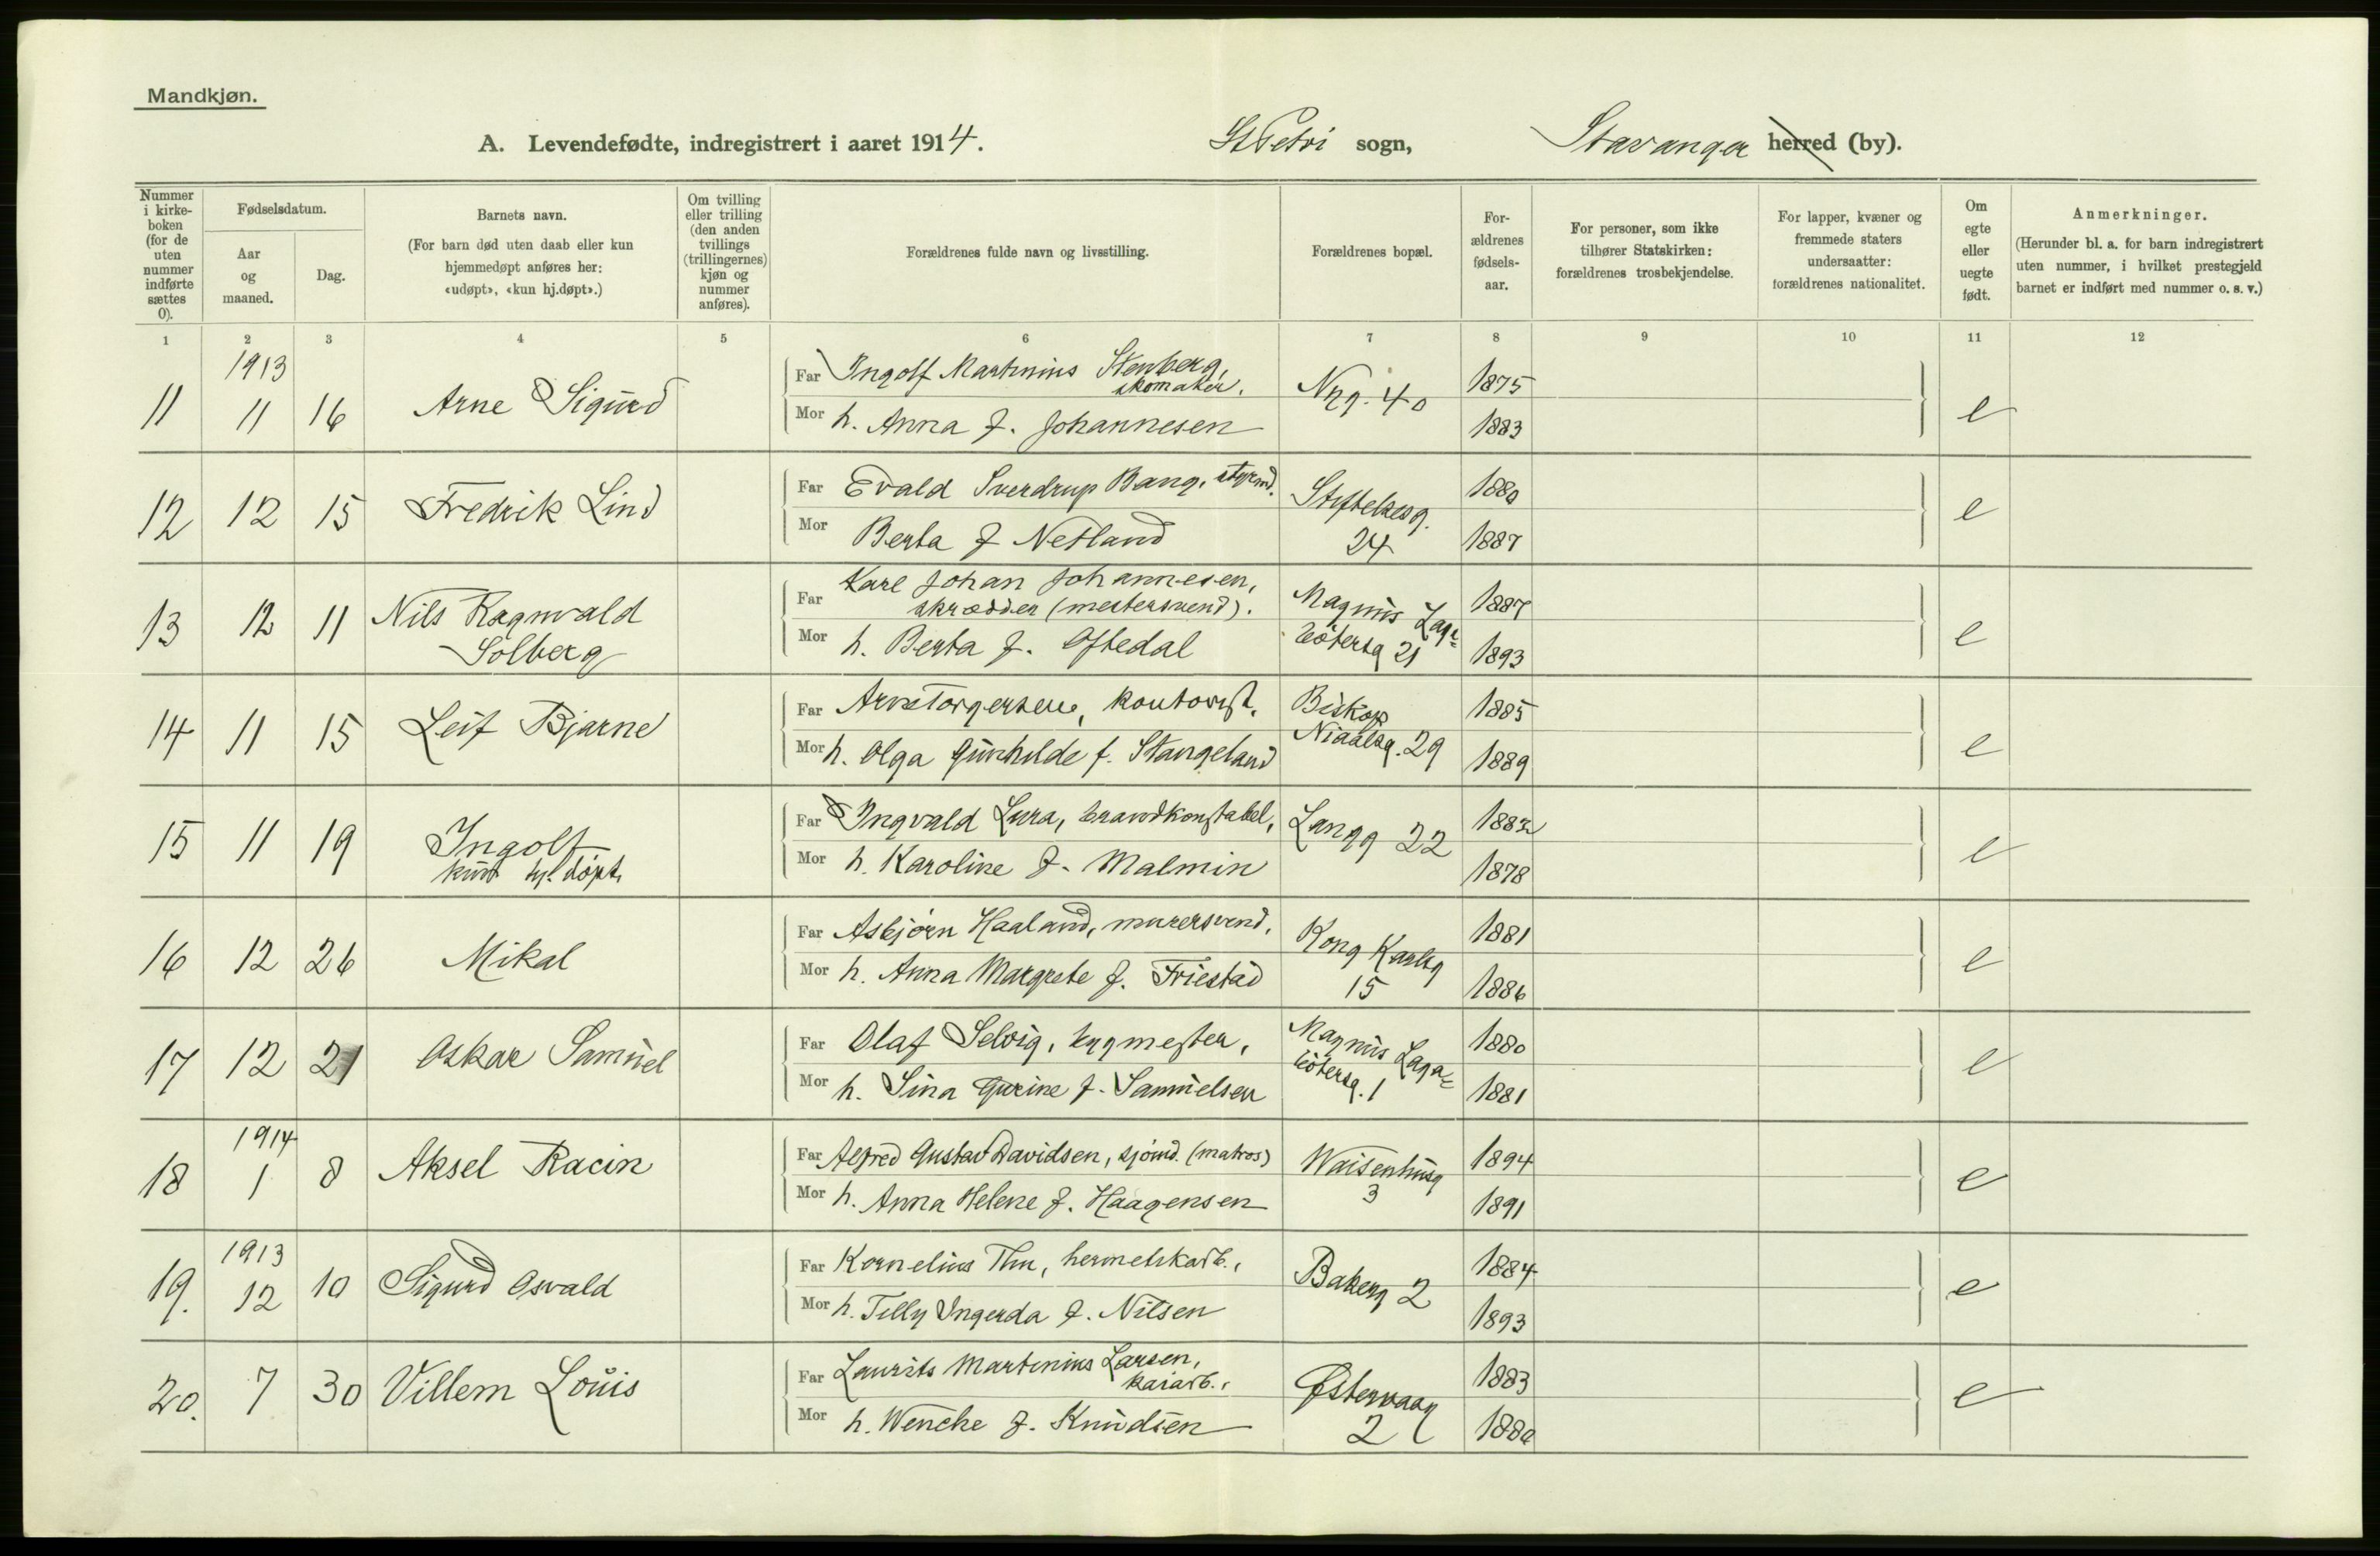 Mandkjøn.
A. Levendefødte, indregistrert i aaret 1914. St Petri sogn, Stavanger herred (by).
Nummer i kirke-boken (for de uten nummer indførte sættes 0).
Fødselsdatum.
Aar og maaned.
Dag.
Barnets navn.
(For barn død uten daab eller kun hjemmedøpt anføres her: «udøpt», «kun hj.døpt».)
Om tvilling eller trilling (den anden tvillings (trillingernes) kjøn og nummer anføres).
Forældrenes fulde navn og livsstilling.
Forældrenes bopæl.
For-ældrenes fødsels-aar.
For personer, som ikke tilhører Statskirken: forældrenes trosbekjendelse.
For lapper, kvæner og fremmede staters undersaatter: forældrenes nationalitet.
Om egte eller uegte født.
Anmerkninger.
(Herunder bl. a. for barn indregistrert uten nummer, i hvilket prestegjeld barnet er indført med nummer o. s. v.)
1 2 3 4 5 6 7 8 9 10 11 12
1913
11 11 16 Arne Sigurd
Far Ingolf Martinius Stenberg, skomaker. Nyg. 40 1875
Mor h. Anna f. Johannesen 1883 e
12 12 15 Fredrik Lind
Far Evald Sverdrup Bang, styrmd. Stiftelsesg. 24 1880
Mor Berta f Netland 1887 e
13 12 11 Nils Ragnvald Solberg
Far Karl Johan Johannesen, skrædder (mestersvend). Magnus Laga= bøtersg 21 1887
Mor h. Berta f. Oftedal 1893 e
14 11 15 Leif Bjarne
Far Arne Torgersen, kontorist. Biskop Niaalsg. 29 1885
Mor h. Olga Gunhilde f. Stangeland 1889 e
15 11 19 Ingolf kun hj. døpt.
Far Ingvald Lura, brandkonstabel, Langg 22 1882
Mor h. Karoline f. Malmin 1878 e
16 12 26 Mikal
Far Asbjørn Haaland, murersvend. Kong Karlsg 15 1881
Mor h. Anna Margrete f. Friestad 1886 e
17 12 21 Oskar Samuel
Far Olaf Selvig, bygmester, Magnus Laga= bøtersg. 1 1880
Mor h. Sina Gurine f. Samuelsen 1881 e
1914
18 1 8 Aksel Racin
Far Alfred Gustav Davidsen, sjømd. (matros) Waisenhusg 3 1894
Mor h. Anna Helene f. Haagensen 1891 e
1913
19. 12 10 Sigurd Osvald
Far Kornelius Thu, hermetikarb., Bakerg 2 1884
Mor h. Tilly Ingerda f. Nilsen 1893 e
20. 7 30 Villem Louis
Far Laurits Martinius Larsen, kaiarb., Østervaag 2 1883
Mor h. Wencke f. Knudsen e